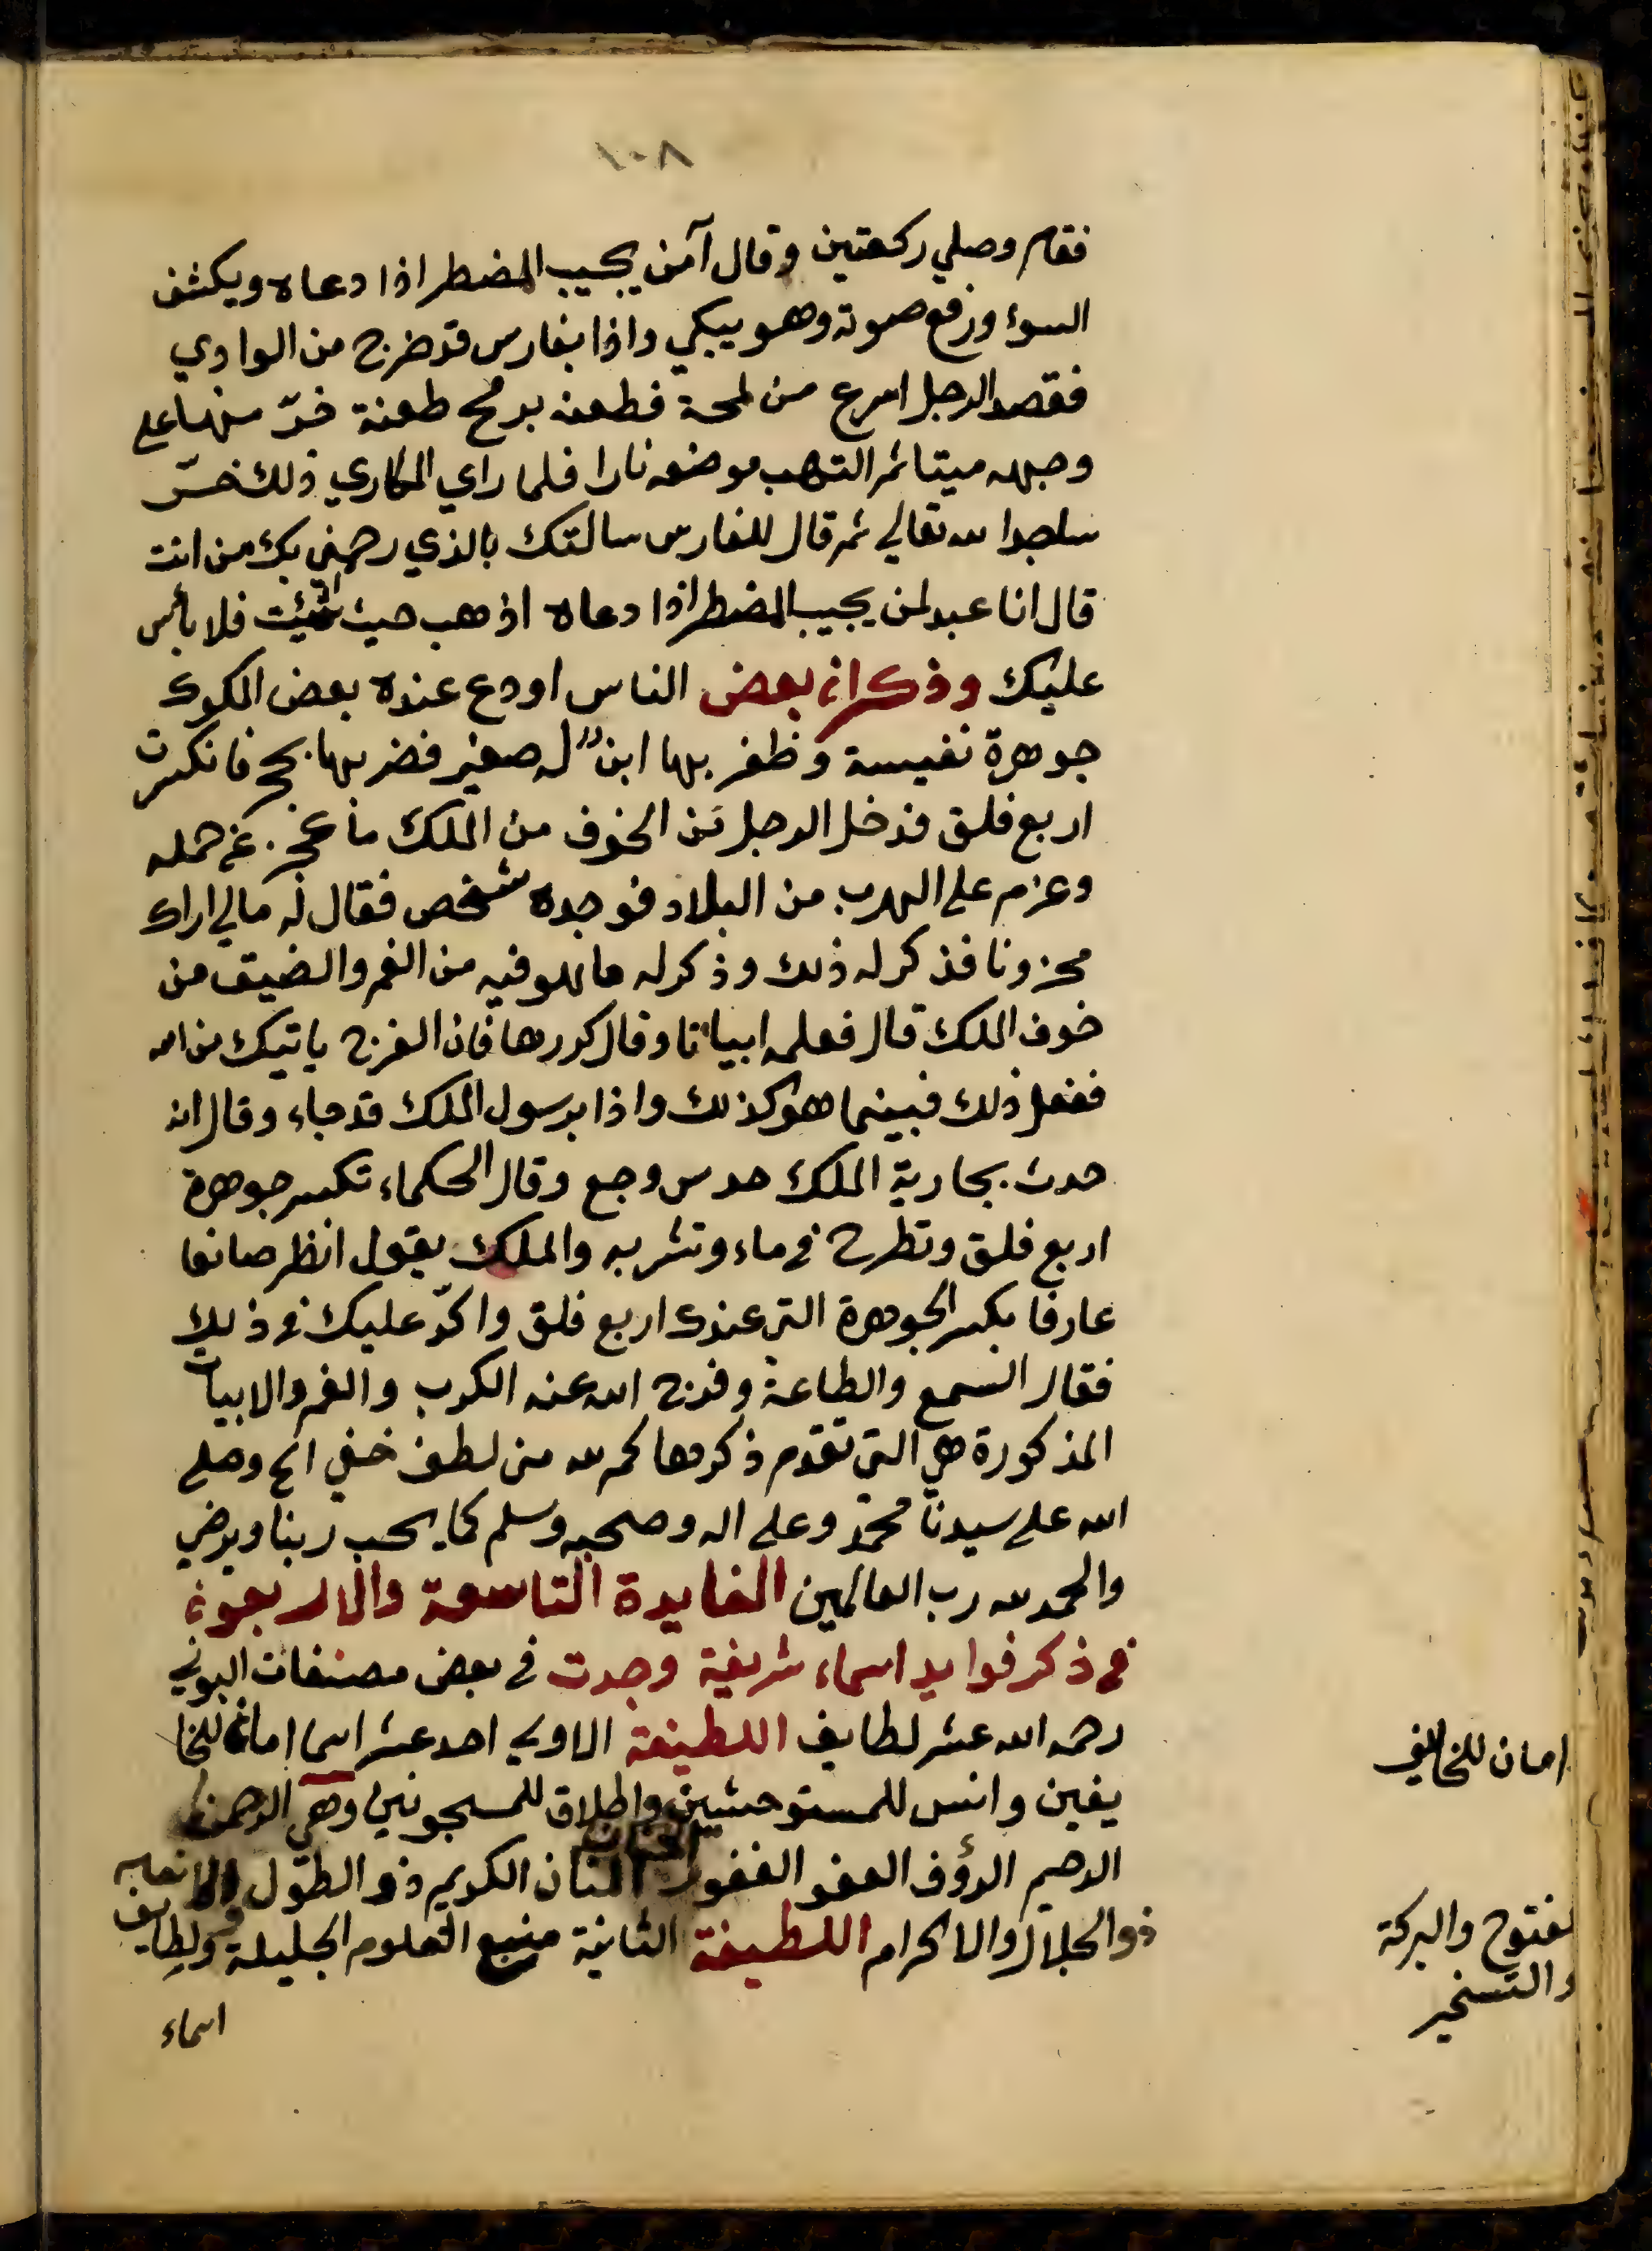 ١٠٨
فقام وصلي ركعتين وقال آمن يجيب المضطر اذا دعاه ويكشف
السوء ورفع صوته وهو يبكي واذا بفارس قد خرج من الوادي
فقصد الرجل اسرع من لمحة فطعنه برمح طعنة خرّ منها علي
وجهه ميتا ثم التهب موضعه نارا فلما راي المكاري ذلك خرّ
ساجدا لله تعالي ثم قال للفارس سالتك بالذي رحمني بك من انت
قال انا عبد لمن يجيب المضطر اذا دعاه اذهب حيث شئت فلا بأس
عليك وذكر ان بعض الناس اودع عنده بعض الملوك
جوهرة نفيسة وظفر بها ابنٌ له صغير فضربها بحجر فانكسرت
اربع فلق فدخل الرجل من الخوف من الملك ما عجز عن حمله
وعزم علي الهرب من البلاد فوجده شخص فقال له مالي اراك
محزونا فذكر له ذلك وذكر له ما هو فيه من الغم والضيق من
خوف الملك قال فعلمه ابياتا وقال كررها فان الفرج ياتيك من الله
ففعل ذلك فبينما هو كذلك واذا برسول الملك قد جاء وقال انه
حدث بجارية الملك حدس وجع وقال الحكماء تكسر جوهرة
اربع فلق وتطرح في ماء وتشربه والملك يقول انظر صانعا
عارفا يكسر الجوهرة التي عندك اربع فلق واكدّ عليك في ذلك
فقال السمع والطاعة وفرج الله عنه الكرب والغم والابيات
المذكورة هي التي تقدم ذكرها كم لله من لطف خفي الخ وصلي
الله علي سيدنا محمد وعلي اله وصحبه وسلم كما يحب ربنا ويرضي
والحمد لله رب العالمين الفايدة التاسعة والاربعون
في ذكر فوايد اسماء شريفة وجدت في بعض مصنفات البوني
رحمه الله عشر لطايف اللطيفة الاولي احد عشر اسما امان للخا
يفين وانس للمستوحشين واطلاق للمسجونين وهي الرحمن
الرحيم الرؤف العفو الغفور الحنان المنان الكريم ذو الطول والانعام
ذو الجلال والاكرام اللطيفة الثانية منبع العلوم الجليلة ولطايف
اسماء
امان للخايف
لفتوح والبركة
والتسخير